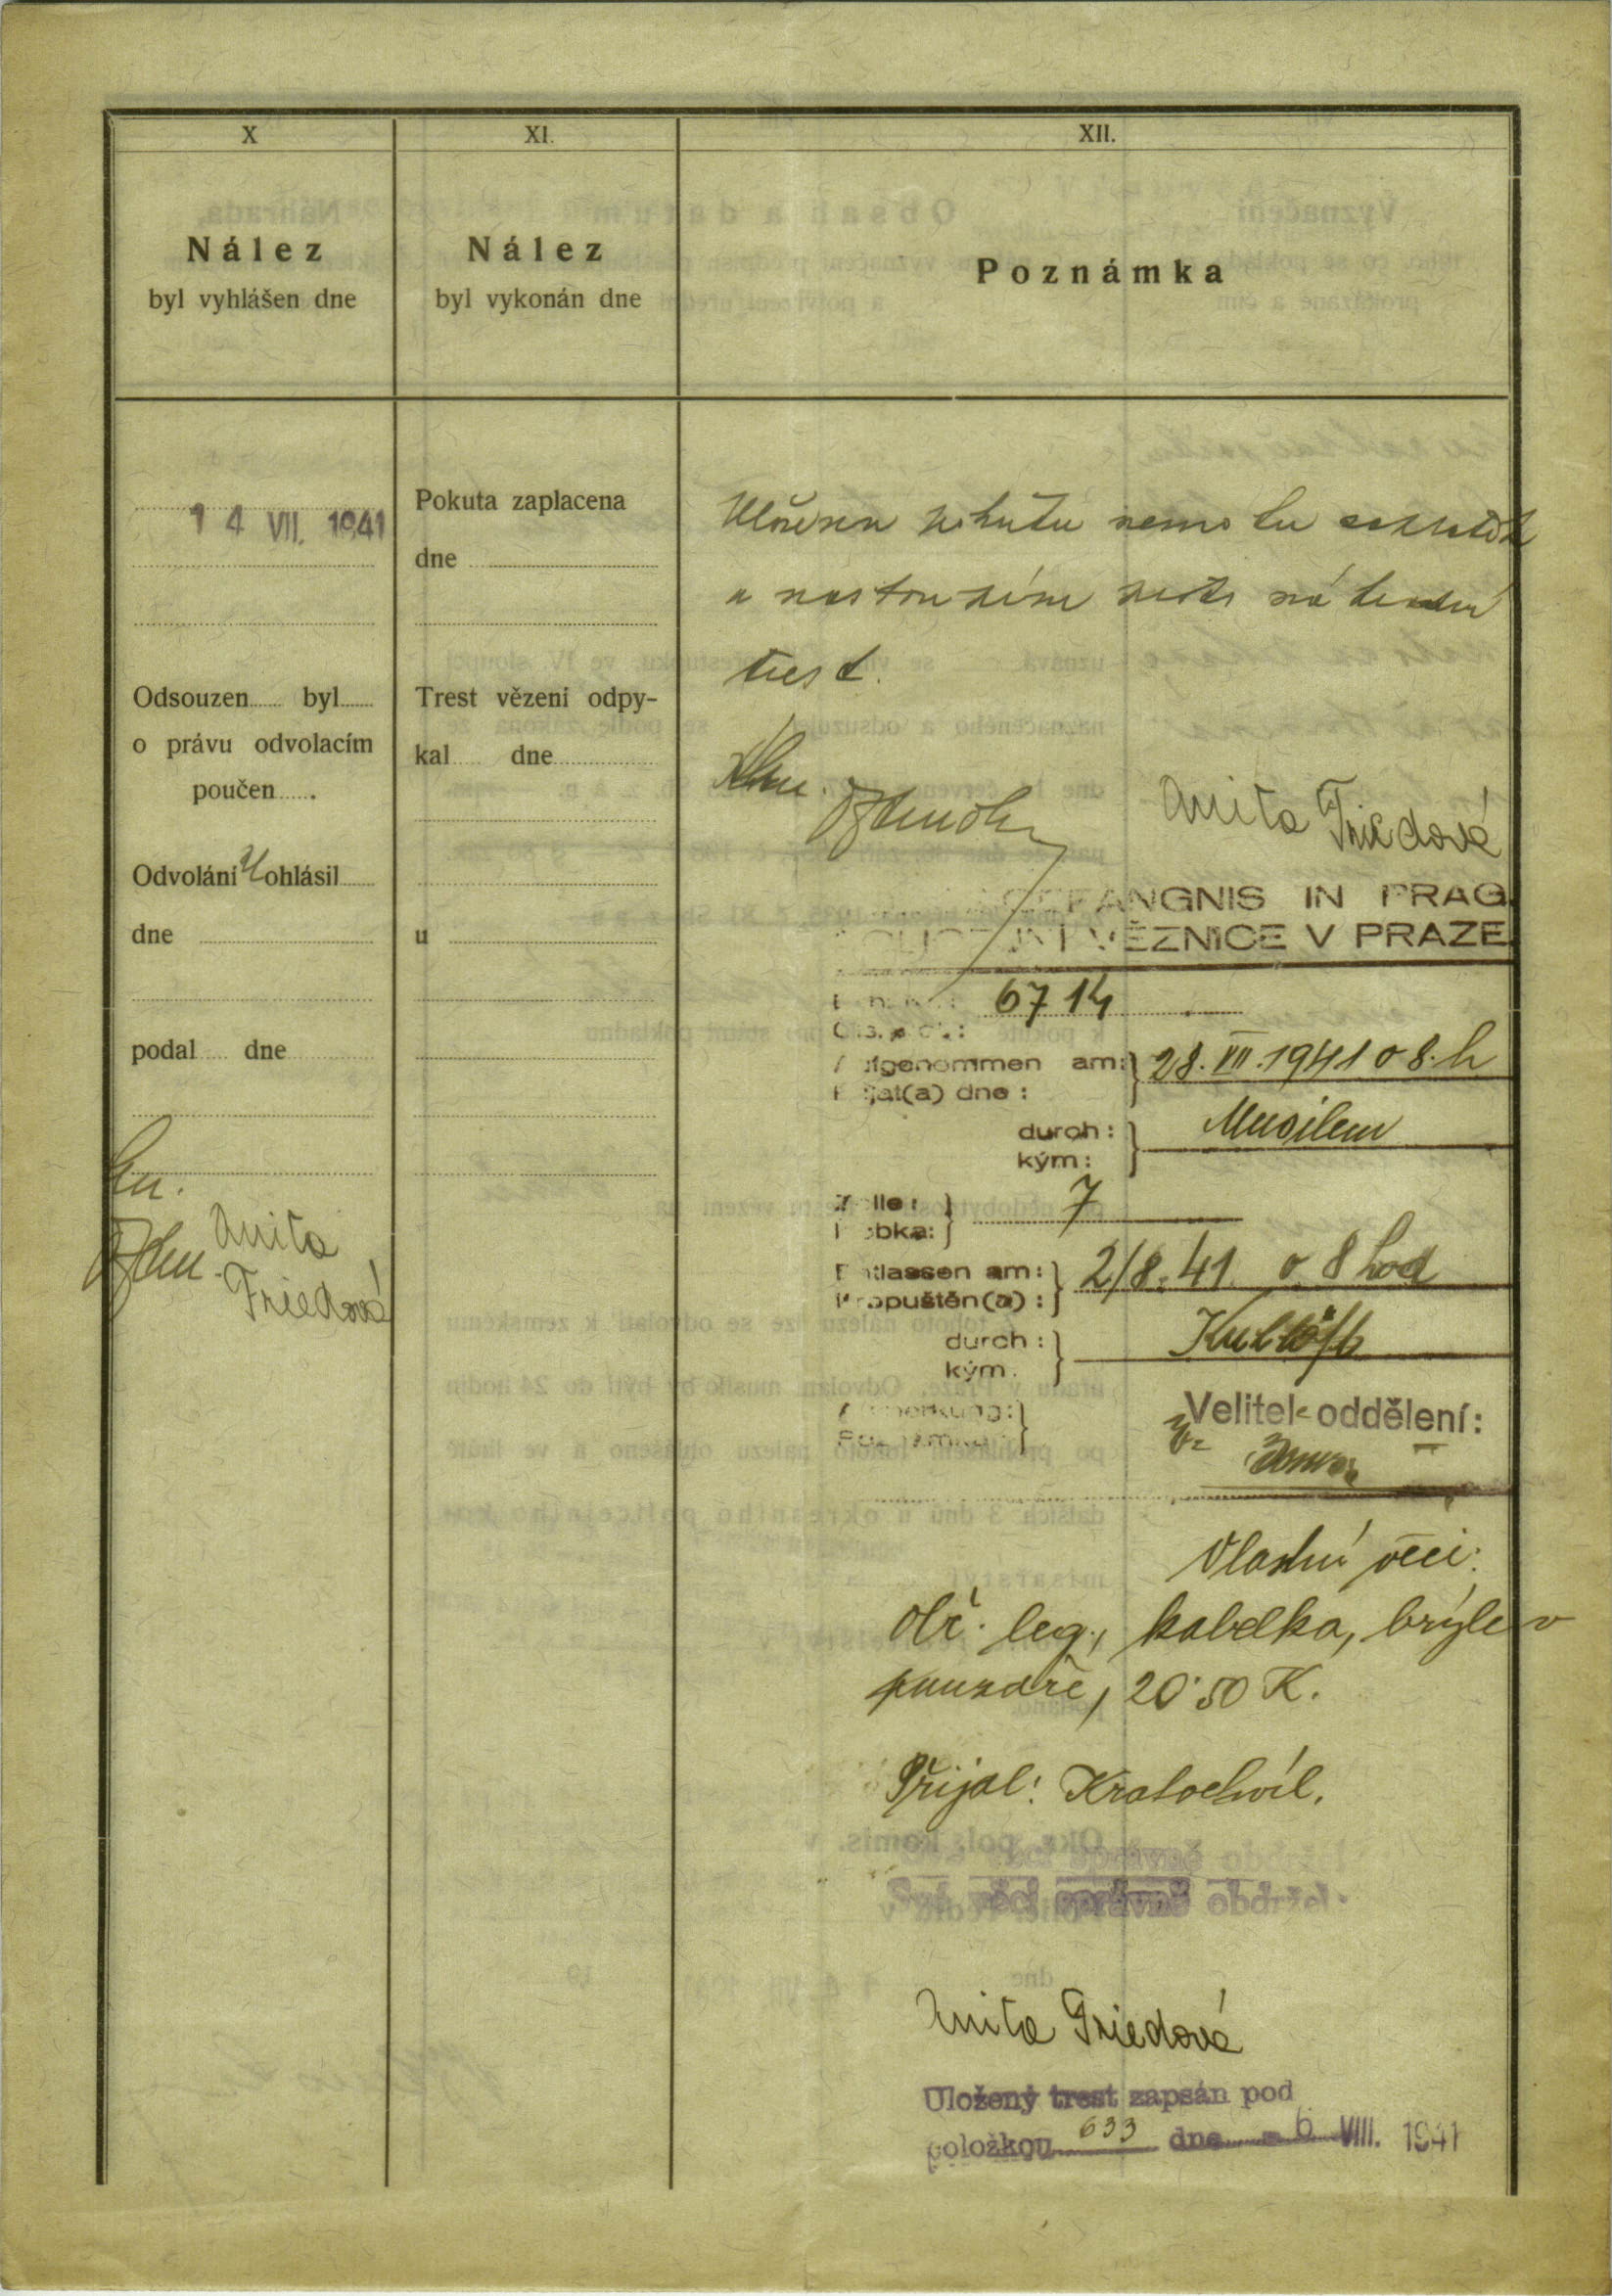 X
Nález
byl vyhlášen dne
14 VII. 1941
Odsouzen byl
o právu odvolacím
poučen .
Odvolání ohlásil
dne
podal dne
Anita
Friedová
XI.
Nález
byl vykonán dne
Pokuta zaplacena
dne
Trest vězení odpy-
kal dne
u
XII.
Poznámka
pokutu nemohu
a nastoupím náhradní
trest.
Anita Friedová
GEFÄNGNIS IN PRAG
VĚZNICE V PRAZE
6714
Aufgenommen am: 28. VII. 1941 o 8. h
Přijat(a) dne :
durch : Musilem
kým :
Zelle : 7
Kobka:
Entlassen am: 2/8. 41 o 8 hod
Propuštěn(a) :
durch :
kým.
Anmerkung:
Poznámka:
Velitel oddělení:
Vlastní věci:
obč. leg., kabelka, brýle v
pouzdře, 20·50 K.
Přijal: Kratochvíl.
Své věci správně obdržel.
Anita Friedová
Uložený trest zapsán pod
položkou 633 dne - 6. VIII. 1941